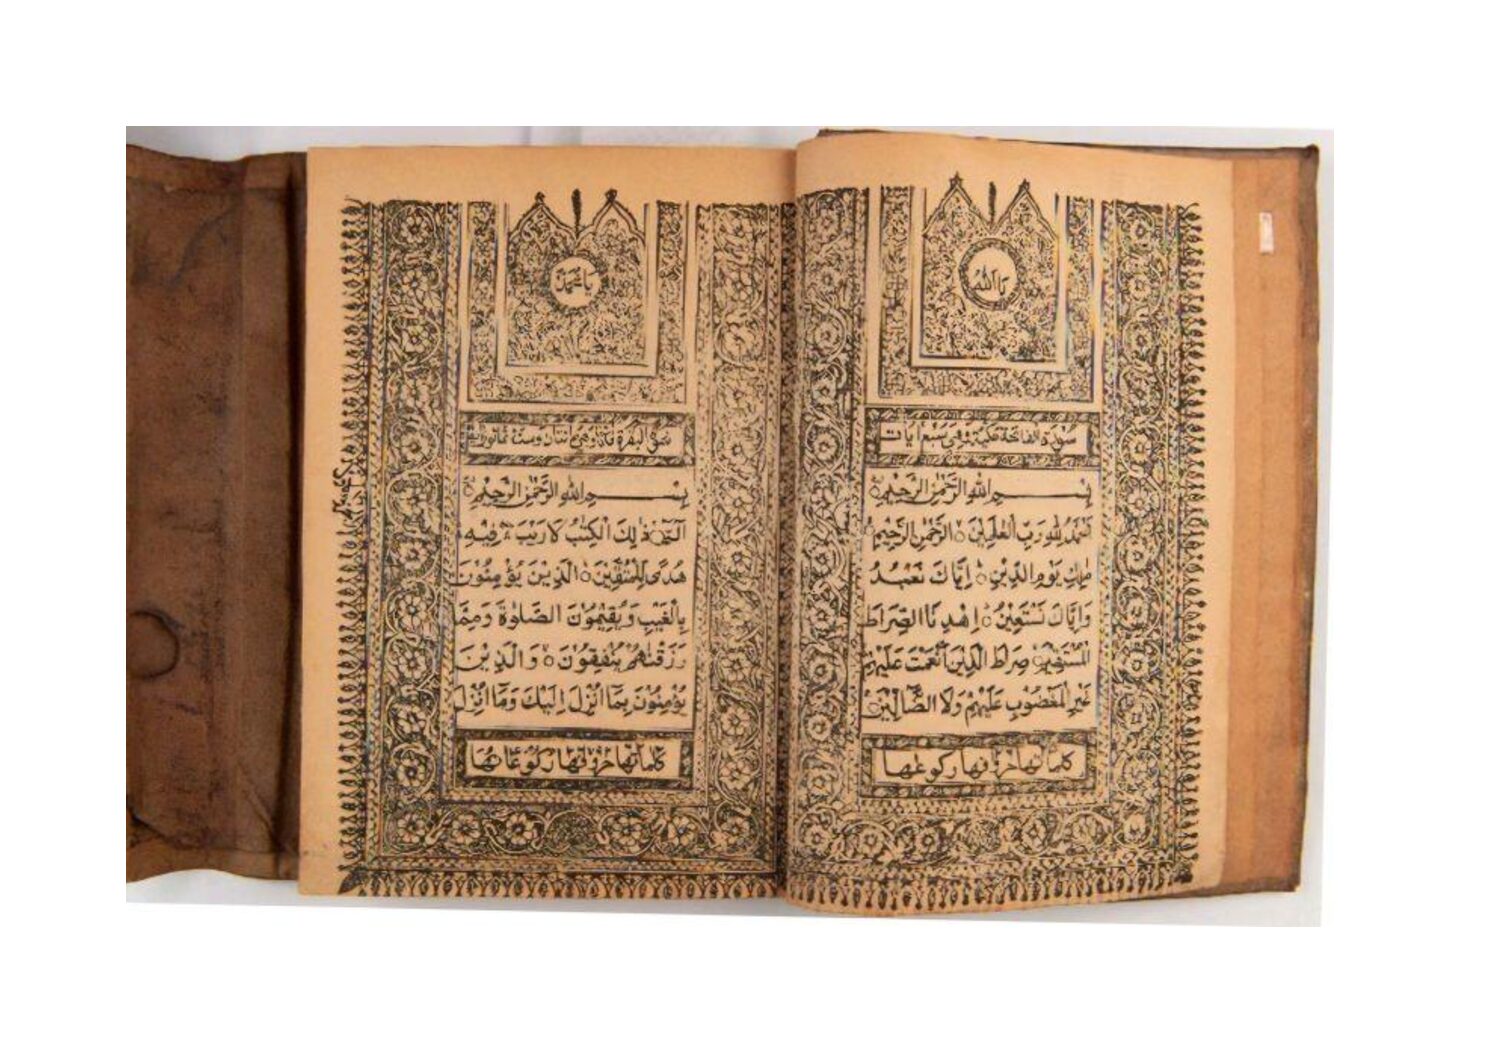 يا الله
سورة الفاتحة مكية وهي سبع ايات
بِسْمِ اللهِ الرَّحْمٰنِ الرَّحِيْمِ
اَلْحَمْدُ لِلّٰهِ رَبِّ الْعٰلَمِيْنَ الرَّحْمٰنِ الرَّحِيْمِ
مٰلِكِ يَوْمِ الدِّيْنِ اِيَّاكَ نَعْبُدُ
وَاِيَّاكَ نَسْتَعِيْنُ اِهْدِنَا الصِّرَاطَ
الْمُسْتَقِيْمَ صِرَاطَ الَّذِيْنَ اَنْعَمْتَ عَلَيْهِمْ
غَيْرِ الْمَغْضُوْبِ عَلَيْهِمْ وَلَا الضَّالِّيْنَ
كلماتها حروفها ركوعها
يا محمد
بِسْمِ اللهِ الرَّحْمٰنِ الرَّحِيْمِ
الٓمّٓ ذٰلِكَ الْكِتٰبُ لَا رَيْبَ فِيْهِ
هُدًى لِّلْمُتَّقِيْنَ الَّذِيْنَ يُؤْمِنُوْنَ
بِالْغَيْبِ وَيُقِيْمُوْنَ الصَّلٰوةَ وَمِمَّا
رَزَقْنٰهُمْ يُنْفِقُوْنَ وَالَّذِيْنَ
يُؤْمِنُوْنَ بِمَا اُنْزِلَ اِلَيْكَ وَمَا اُنْزِلَ
كلماتها حروفها ركوعاتها